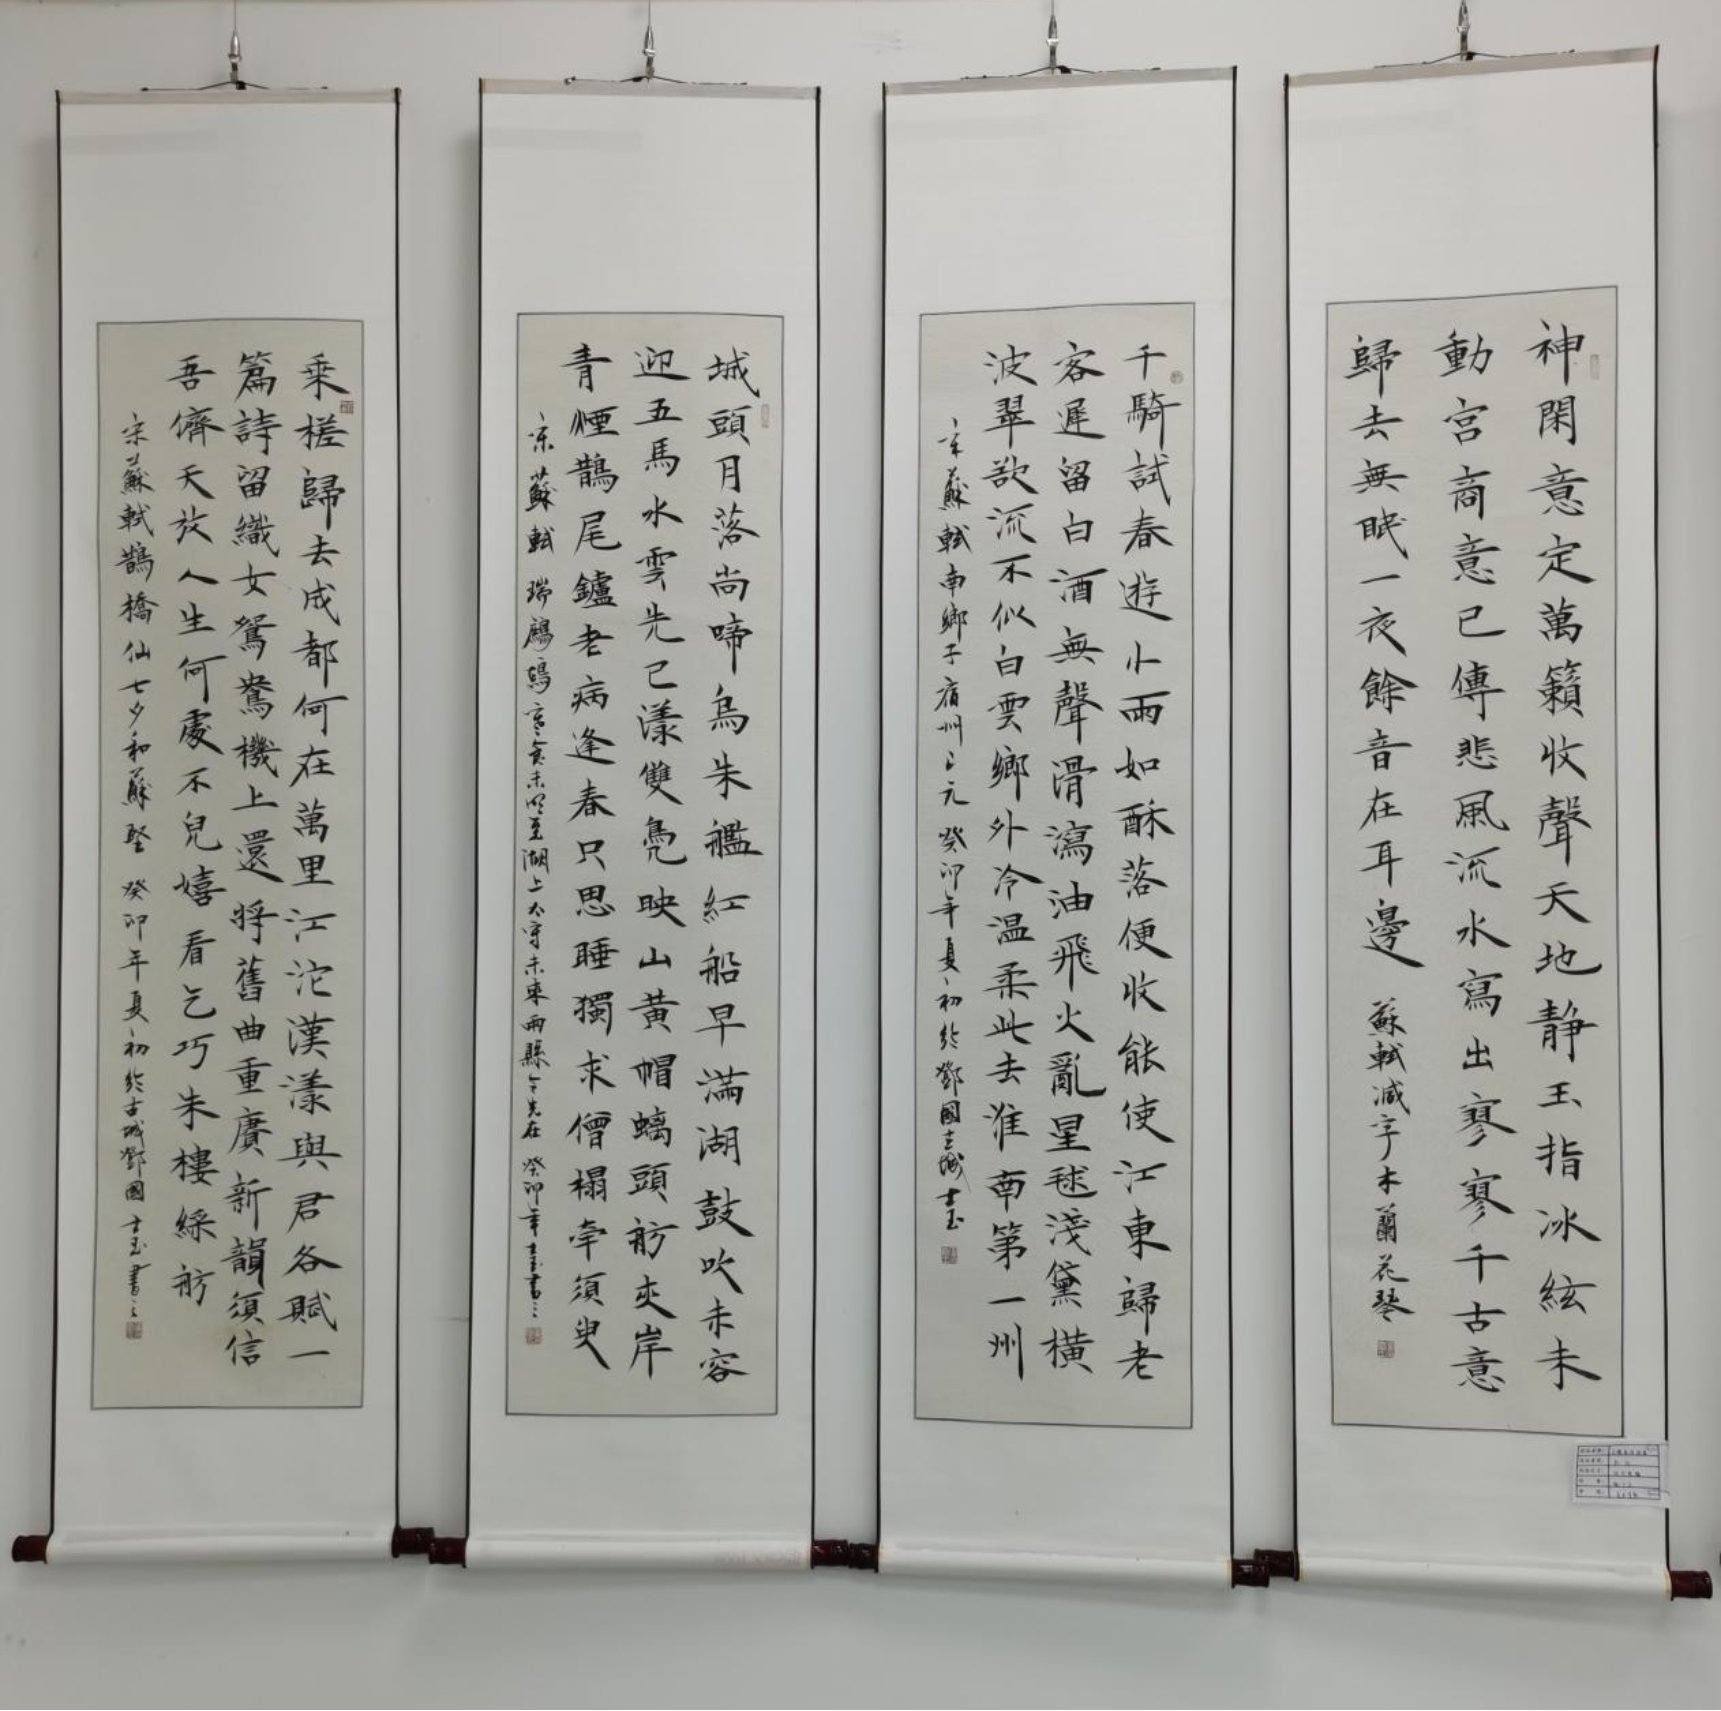 神閑意定萬籟收聲天地静玉指冰絃未
動宮商意已傳悲風流水寫出寥寥千古意
歸去無眠一夜餘音在耳邊
蘇軾減字木蘭花琴
千騎試春遊小雨如酥落便收能使江東歸老
客遲留白酒無聲滑瀉油飛火亂星毬淺黛橫
波翠欲流不似白雲鄉外冷温柔此去淮南第一州
宋蘇軾南鄉子宿州上元 癸卯年夏初於鄧國古城士玉
城頭月落尚啼烏朱艦紅船早滿湖鼓吹未容
迎五馬水雲先已漾雙鳧映山黃帽螭頭舫夾岸
青煙鵲尾鑪老病逢春只思睡獨求僧榻寄須臾
宋蘇軾瑞鷓鴣寒食未明至湖上太守未來兩縣令先在 癸卯年士玉書之
乘槎歸去成都何在萬里江沱漢漾與君各賦一
篇詩留織女鴛鴦機上還將舊曲重賡新韻須信
吾儕天放人生何處不兒嬉看乞巧朱樓綵舫
宋蘇軾鵲橋仙七夕和蘇堅 癸卯年夏初於古城鄧國士玉書之